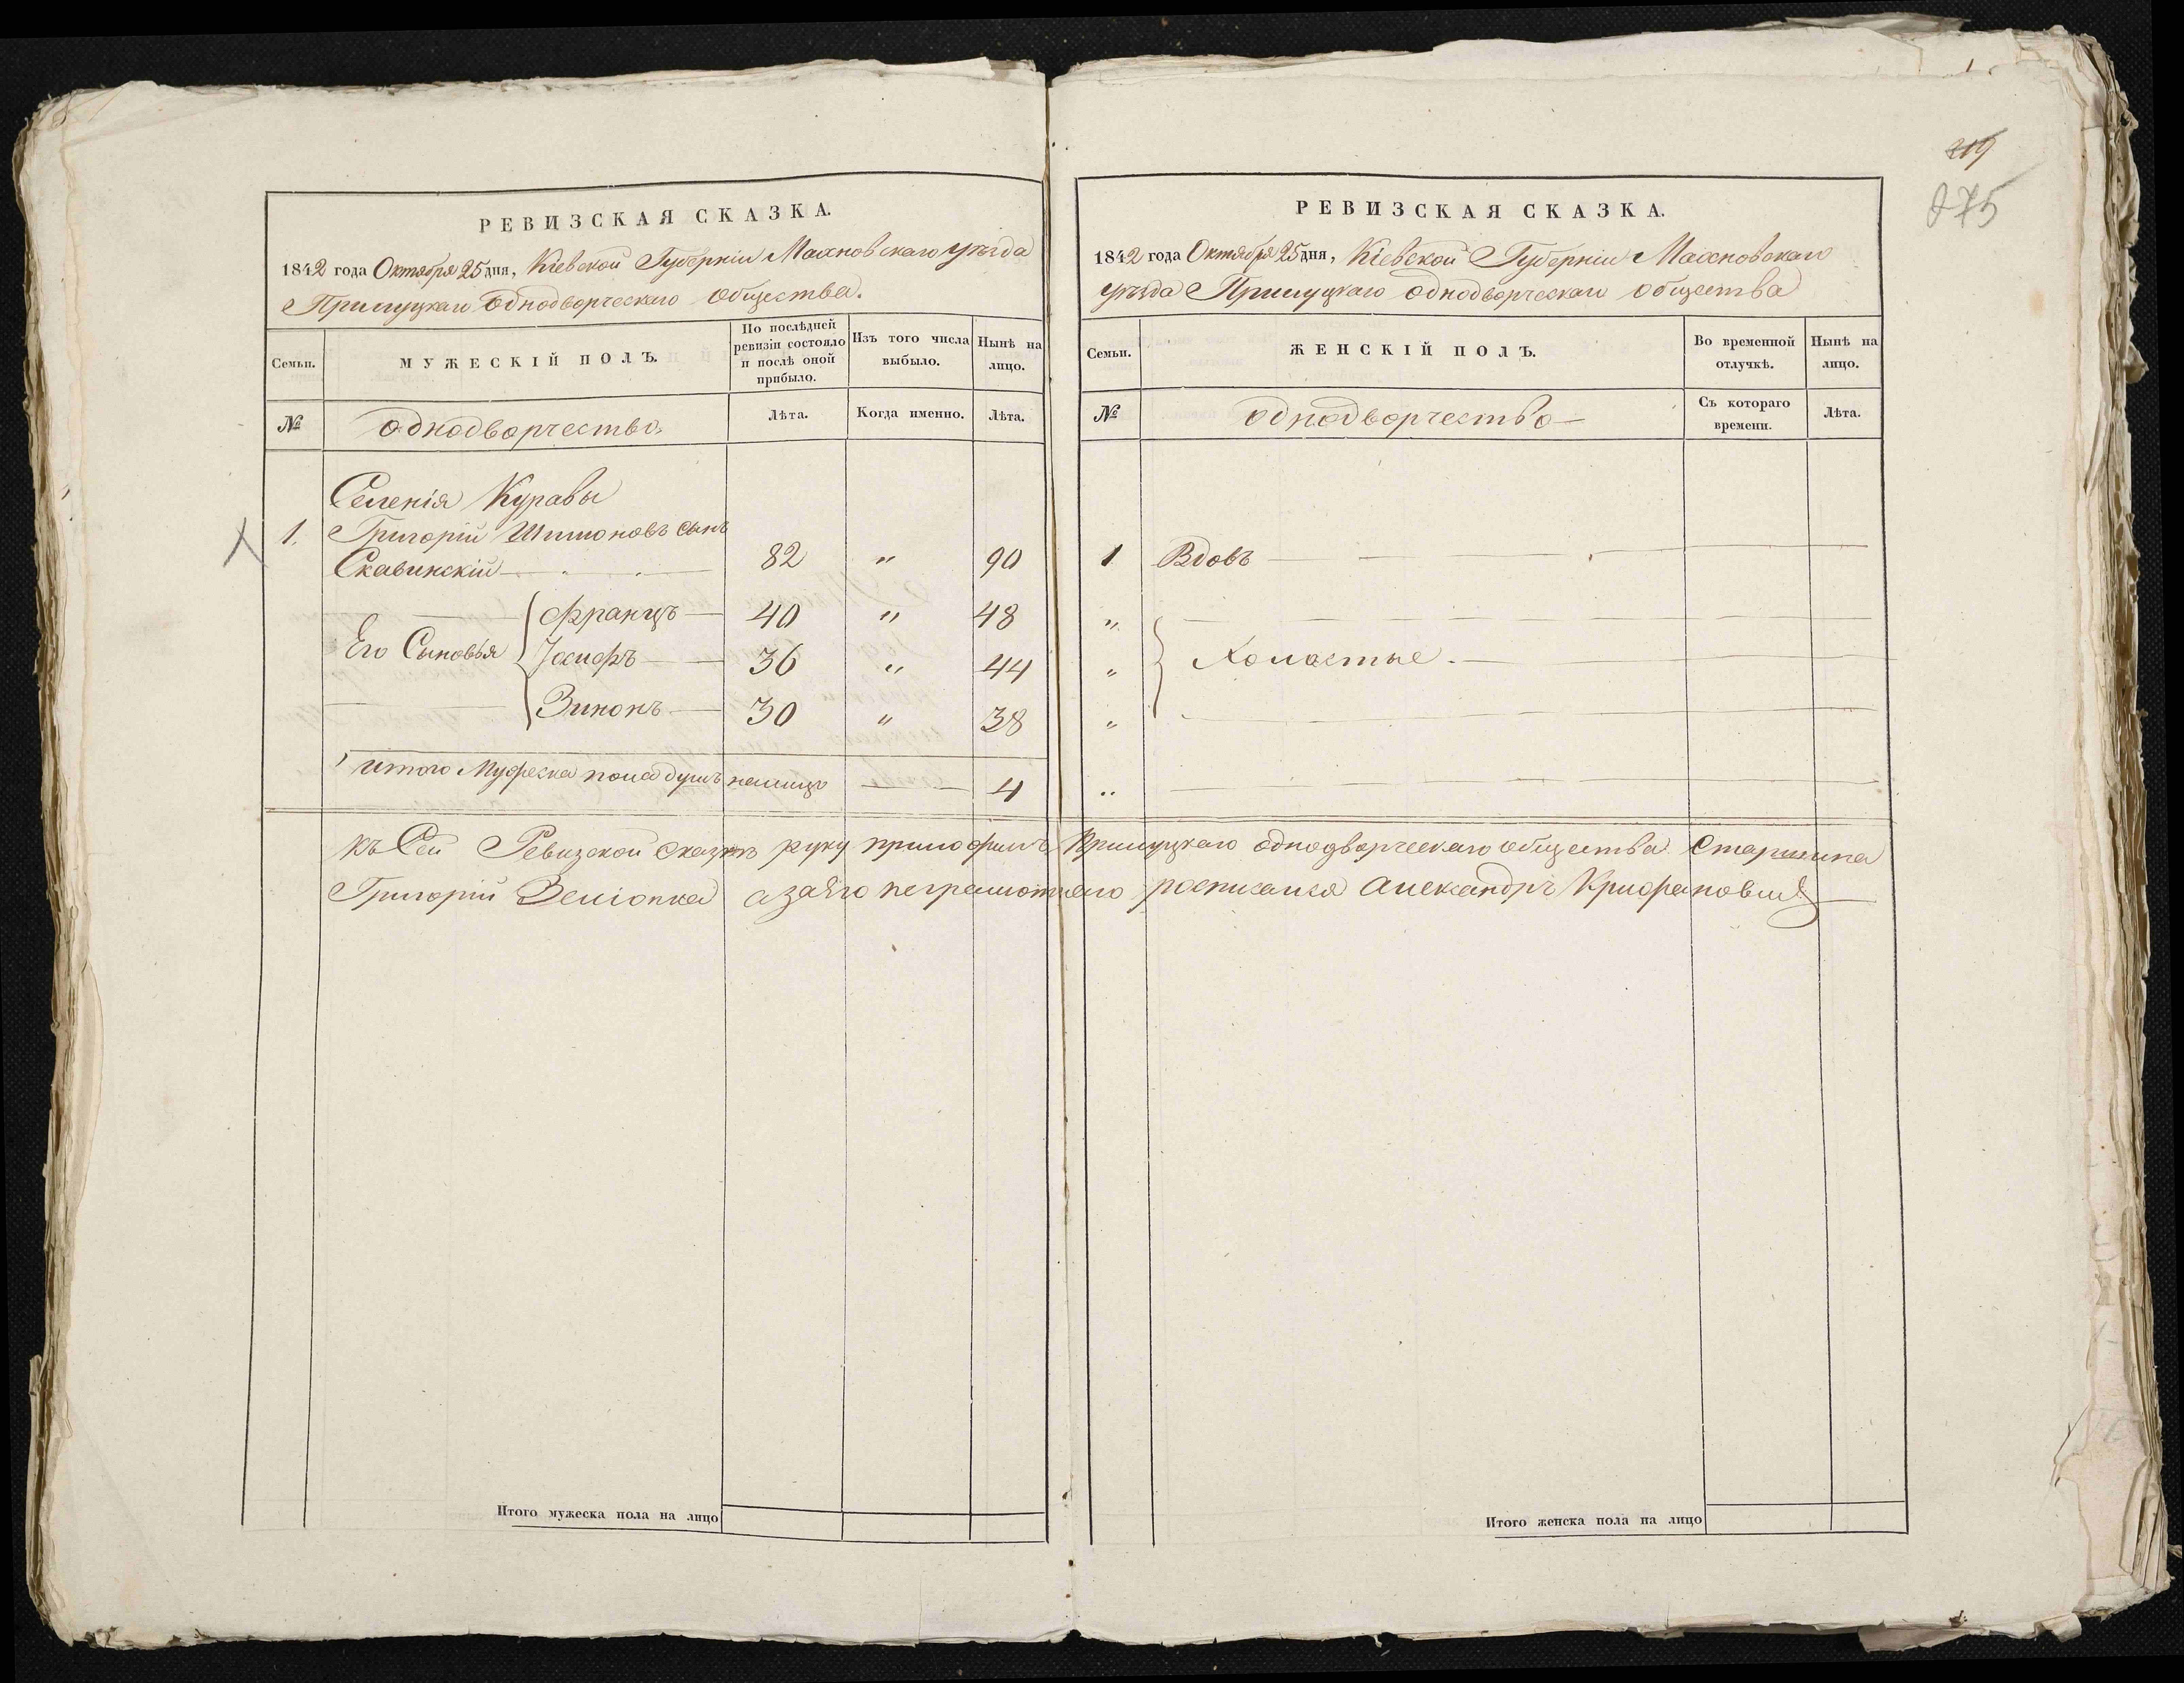 219
275
РЕВИЗСКАЯ СКАЗКА.
1842 года Октября 25 дня, Кіевской Губерніи Махновскаго уѣзда
Прилуцкаго однодворческаго общества.
Семьи. МУЖЕСКІЙ ПОЛЪ. По послѣдней ревизіи состояло и послѣ оной прибыло. Изъ того числа выбыло. Нынѣ на лицо.
№ однодворчество Лѣта. Когда именно. Лѣта.
Селенія Куравы
1. Григорій Шимоновъ сынъ
Скавинскій 82 " 90
Францъ 40 " 48
Его Сыновья Іосифъ 36 " 44
Зинонъ 30 " 38
итого Мужеска пола душъ налицо 4
РЕВИЗСКАЯ СКАЗКА.
1842 года Октября 25 дня, Кіевской Губерніи Махновскаго
уѣзда Прилуцкаго однодворческаго общества
Семьи. ЖЕНСКІЙ ПОЛЪ. Во временной отлучкѣ. Нынѣ на лицо.
№ однодворчество Съ котораго времени. Лѣта.
1 Вдовъ
"
" Холостые.
"
"
къ Сей Ревизской сказкѣ руку приложилъ Прилуцкаго однодворческаго общества Старшина
Григорій а за его неграмотнаго росписался Александръ
Итого мужеска пола на лицо
Итого женска пола на лицо